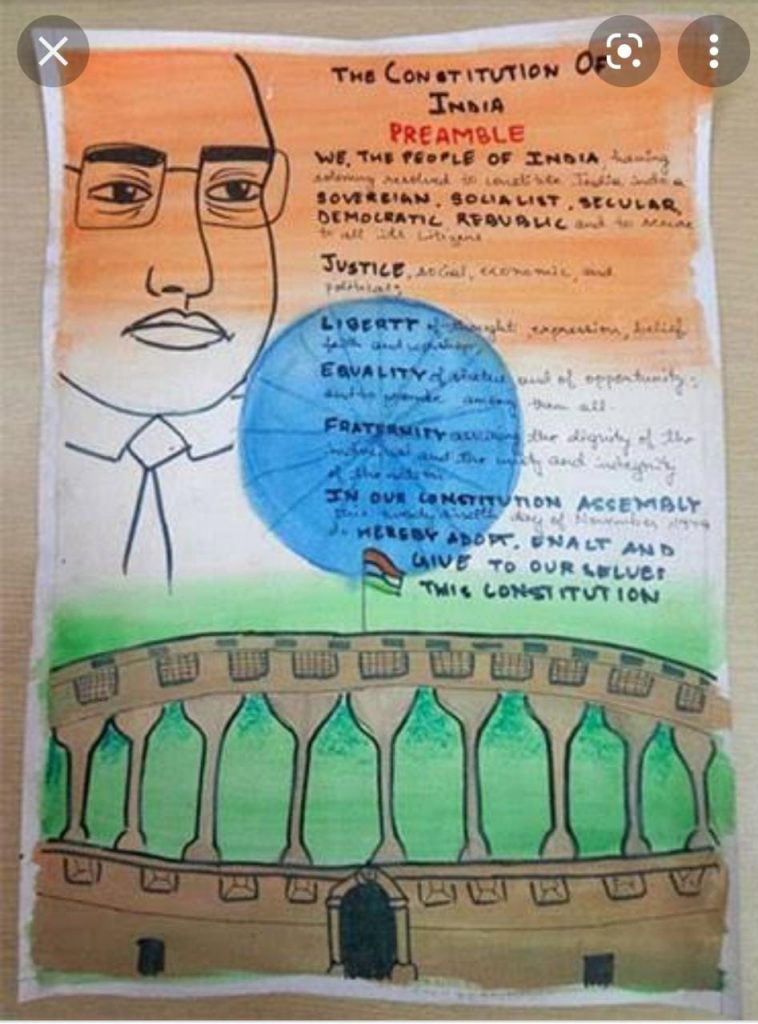 THE CONSTITUTION OF
INDIA
PREAMBLE
WE, THE PEOPLE OF INDIA, having
solemnly resolved to constitute India into a
SOVEREIGN, SOCIALIST, SECULAR,
DEMOCRATIC REPUBLIC and to secure
to all its citizens
JUSTICE, social, economic, and
political;
LIBERTY of thought, expression, belief
faith and worship;
EQUALITY of status and of opportunity;
and to promote among them all.
FRATERNITY assuring the dignity of the
and the unity and integrity
of the nation
IN OUR CONSTITUTION ASSEMBLY
this day of November, 1949
HEREBY ADOPT, ENACT AND
GIVE TO OURSELVES
THIS CONSTITUTION